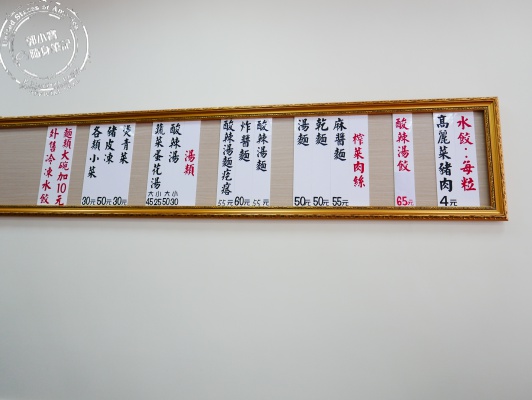 水餃：每粒
高麗菜豬肉
4元
酸辣湯餃
65元
榨菜肉絲
麻醬麵
55元
乾麵
50元
湯麵
50元
酸辣湯麵
55元
炸醬麵
60元
酸辣湯麵疙瘩
55元
湯類
酸辣湯
大50
小30
蔬菜蛋花湯
大45
小25
燙青菜
30元
豬皮凍
50元
各類小菜
30元
麵類大碗加10元
外售冷凍水餃
郭小寶
隨身筆記